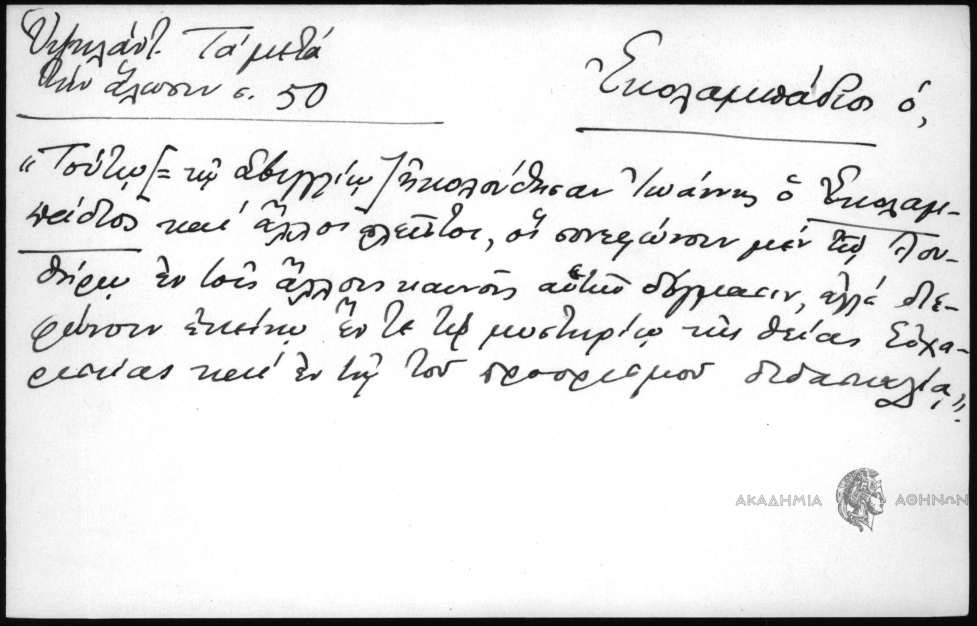 Ὑψηλάντ. Τά μετά
τήν ἅλωσιν σ. 50
Ἐκολαμπάδιος ὁ,
"Τούτῳ [= τῷ Σβιγγλίῳ] ἠκολούθησαν Ἰωάννης ὁ Ἐκολαμ-
πάδιος καί ἄλλοι πλεῖστοι, οἵ συνεφώνουν μέν τῷ Λου-
θήρῳ ἐν τοῖς ἄλλοις καινοῖς αὐτοῦ δόγμασιν, ἀλλά διε-
φώνουν ἐκείνῳ ἔν τε τῷ μυστηρίῳ τῆς θείας Εὐχα-
ριστίας καί ἐν τῇ τοῦ προορισμοῦ διδασκαλίᾳ".
ΑΚΑΔΗΜΙΑ ΑΘΗΝΩΝ